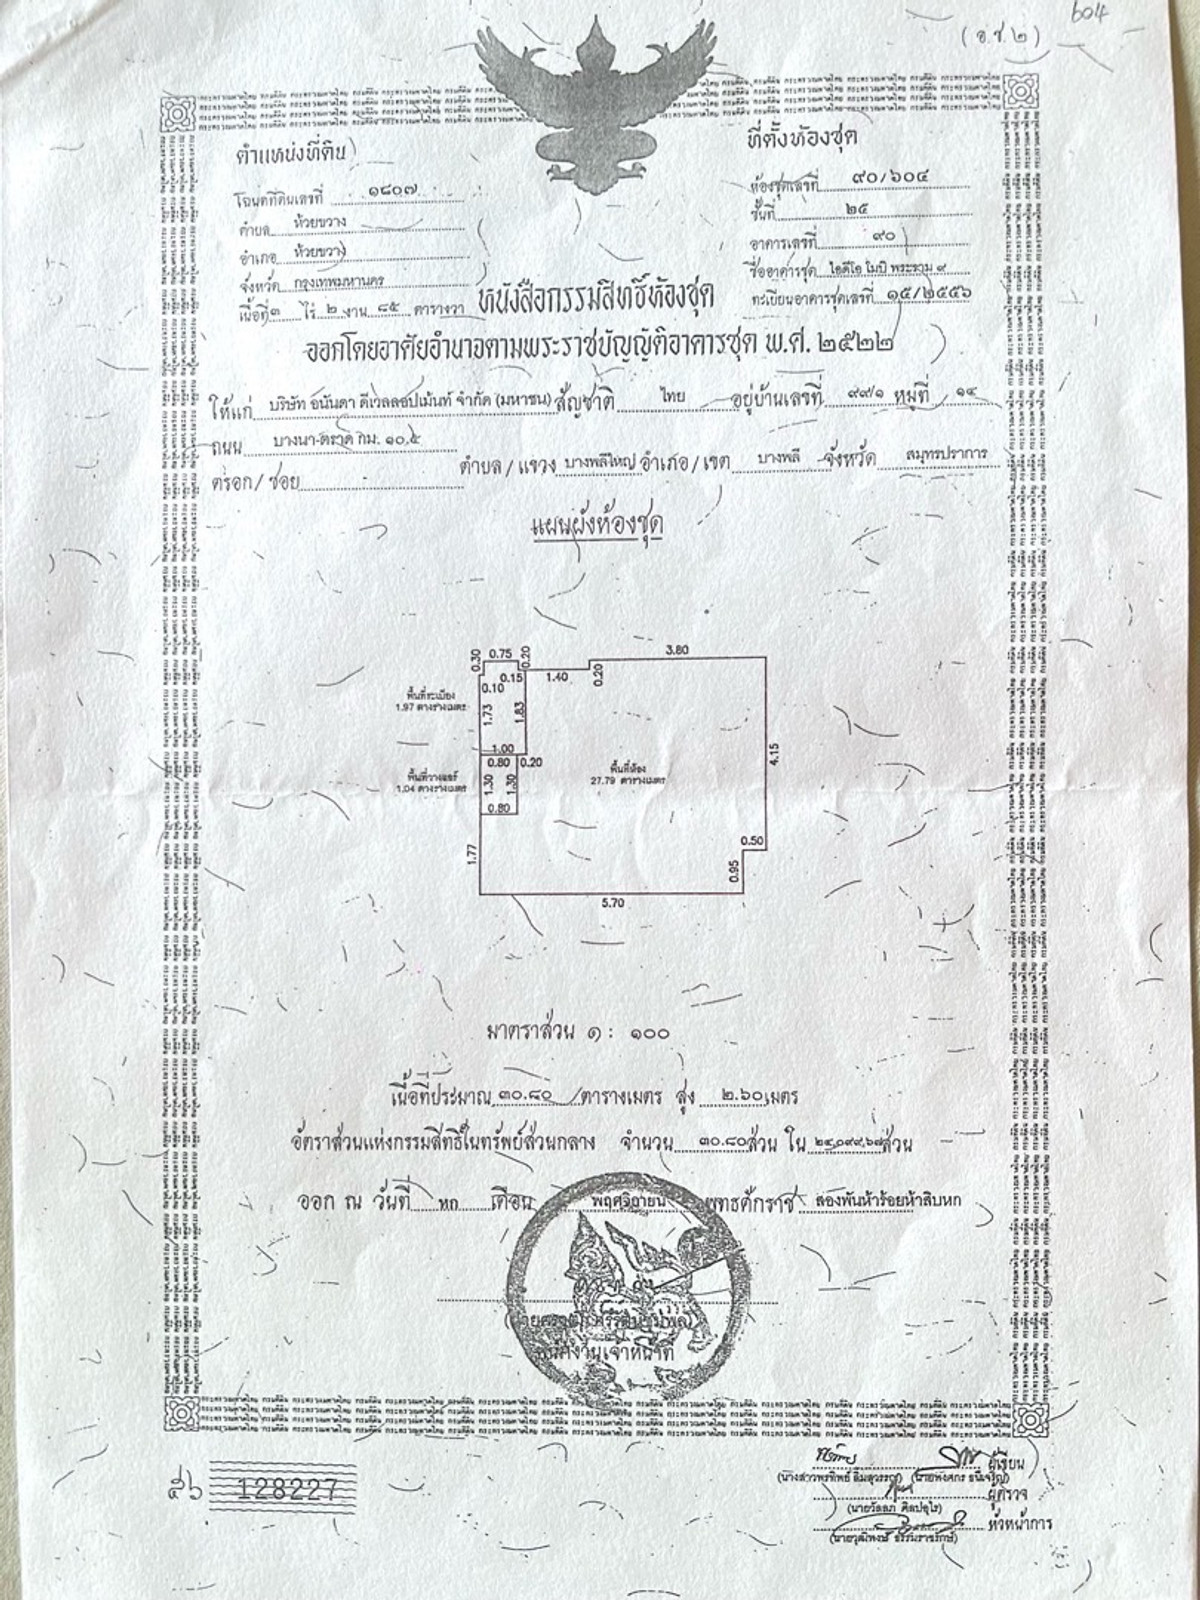 604
(อ.ช.๒)
ตำแหน่งที่ดิน
โฉนดที่ดินเลขที่ ๑๘๐๗
ตำบล ห้วยขวาง
อำเภอ ห้วยขวาง
จังหวัด กรุงเทพมหานคร
เนื้อที่ ๓ ไร่ ๒ งาน ๘๕ ตารางวา
ที่ตั้งห้องชุด
ห้องชุดเลขที่ ๙๐/๖๐๔
ชั้นที่ ๒๕
อาคารเลขที่ ๙๐
ชื่ออาคารชุด ไอดีโอ โมบิ พระราม ๙
ทะเบียนอาคารชุดเลขที่ ๑๕/๒๕๕๖
หนังสือกรรมสิทธิ์ห้องชุด
ออกโดยอาศัยอำนาจตามพระราชบัญญัติอาคารชุด พ.ศ. ๒๕๒๒
ให้แก่ บริษัท อนันดา ดีเวลลอปเม้นท์ จำกัด (มหาชน) สัญชาติ ไทย อยู่บ้านเลขที่ ๙๙/๑ หมู่ที่ ๑๔
ถนน บางนา-ตราด กม. ๑๐.๕
ตรอก/ซอย
ตำบล/แขวง บางพลีใหญ่ อำเภอ/เขต บางพลี จังหวัด สมุทรปราการ
แผนผังห้องชุด
0.30 0.75 0.20 3.80
0.15 1.40 0.20
0.10
พื้นที่ระเบียง
1.97 ตารางเมตร
1.73 1.83
1.00
4.15
0.80 0.20
พื้นที่วางแอร์
1.04 ตารางเมตร
1.30 1.30
พื้นที่ห้อง
27.79 ตารางเมตร
0.80
1.77
0.50
0.95
5.70
มาตราส่วน ๑ : ๑๐๐
เนื้อที่ประมาณ ๓๐.๘๐ ตารางเมตร สูง ๒.๖๐ เมตร
อัตราส่วนแห่งกรรมสิทธิ์ในทรัพย์ส่วนกลาง จำนวน ๓๐.๘๐ ส่วน ใน ๒๔,๐๙๙.๖๗ ส่วน
ออก ณ วันที่ หก เดือน พฤศจิกายน พุทธศักราช สองพันห้าร้อยห้าสิบหก
พนักงานเจ้าหน้าที่
๕๖ 128227
ผู้เขียน
ผู้ตรวจ
หัวหน้าการ